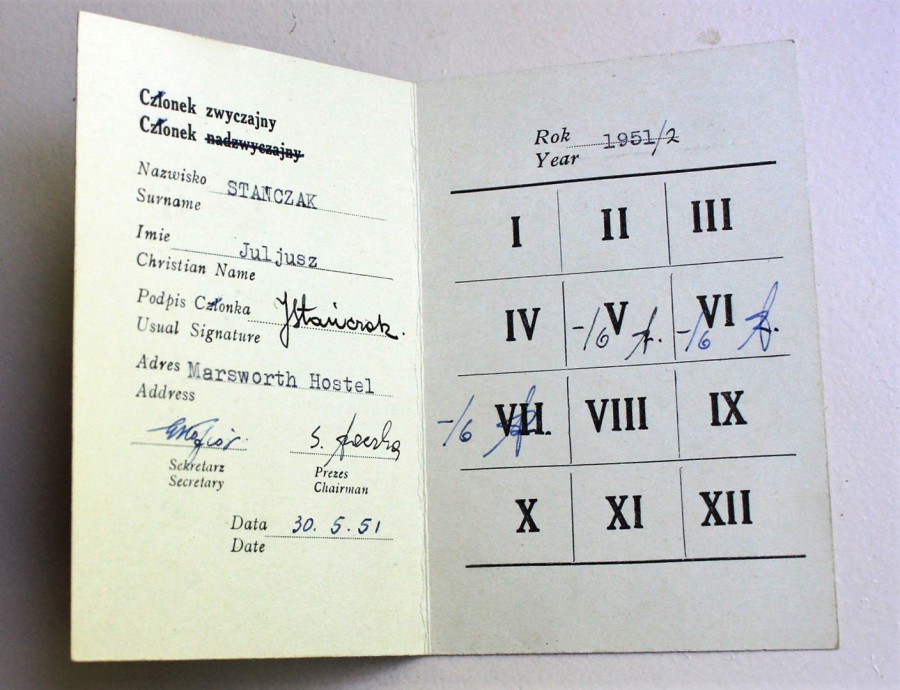 Członek zwyczajny
Członek nadzwyczajny
Nazwisko STAŃCZAK
Surname
Imie Juljusz
Christian Name
Podpis Członka JStańczak.
Usual Signature
Adres Marsworth Hostel
Address
Sekretarz
Secretary
Prezes
Chairman
Data 30. 5. 51
Date
Rok 1951/2
Year
I II III
IV V VI
-/6 -/6
VII VIII IX
-/6
X XI XII